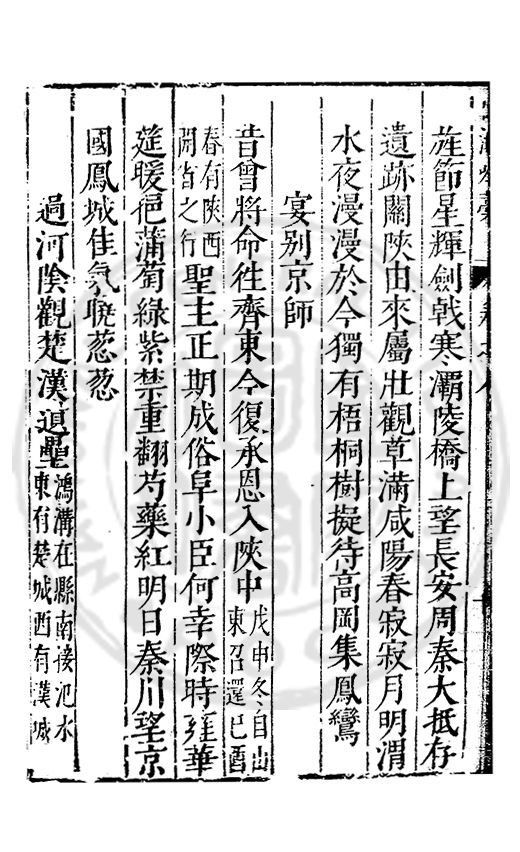 旌節星輝劍戟寒灞陵橋上望長安周秦大抵存
遺跡關陝由來屬壯觀草滿咸陽春寂寂月明渭
水夜漫漫於今獨有梧桐樹擬待高岡集鳳鸞
宴別京師
昔曾將命徃齊東今復承恩入陝中戊申冬自山東召還已酉
春有陝西開省之行聖主正期成俗阜小臣何幸際時雍華
筵暖浥蒲萄綠紫禁重翻芍藥紅明日秦川望京
國鳳城佳氣曉葱葱
過河陰觀楚漢遺壘鴻溝在縣南接汜水東有楚城西有漢城